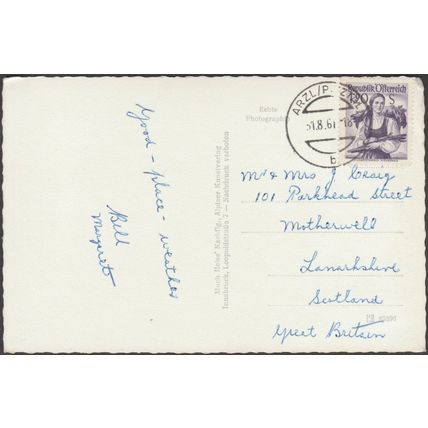 Good - place - weather
Bill
Margaret
Echte
Photographie
Much Heiss' Nachflg., Alpiner Kunstverlag
Innsbruck, Leopoldstraße 7 — Nachdruck verboten
ARZL/P
8.61-18
b
Republik Österreich
S
Mr & Mrs J Craig
101 Parkhead Street
Motherwell
Lanarkshire
Scotland
Great Britain